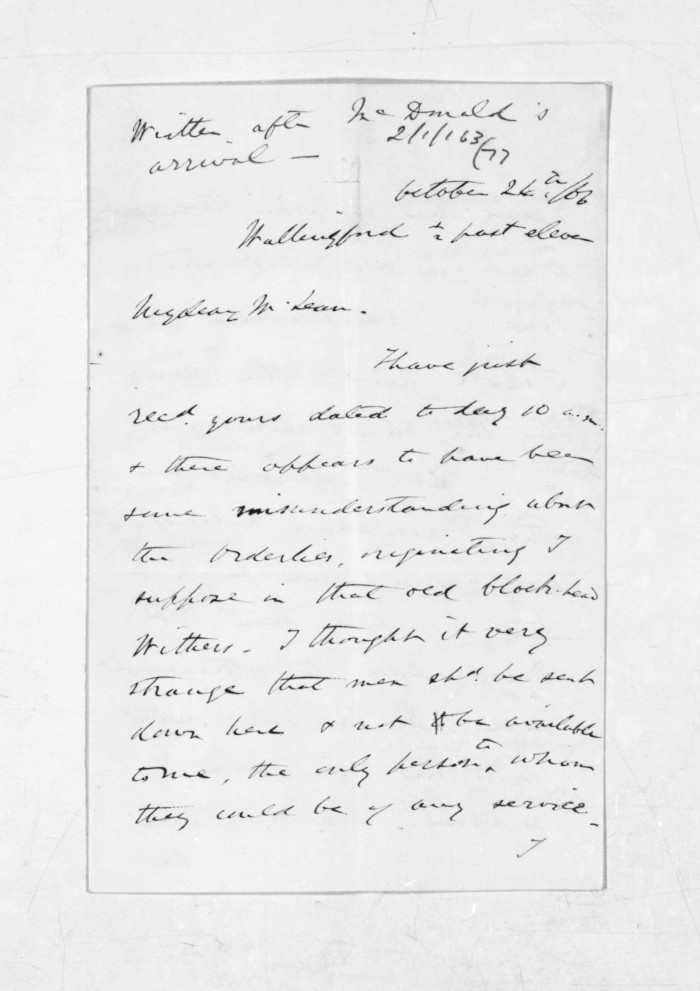 Written after McDonald's
arrival —
2/1/163/77
October 24th/66
Wallingford ½ past eleven
My dear McLean.
I have just
recd. yours dated to day 10 a.m.
& there appears to have been
some misunderstanding about
the Orderlies, originating I
suppose in that old block-head
Withers. I thought it very
strange that men shd. be sent
down here & not be available
to me, the only person to whom
they could be of any service.
I